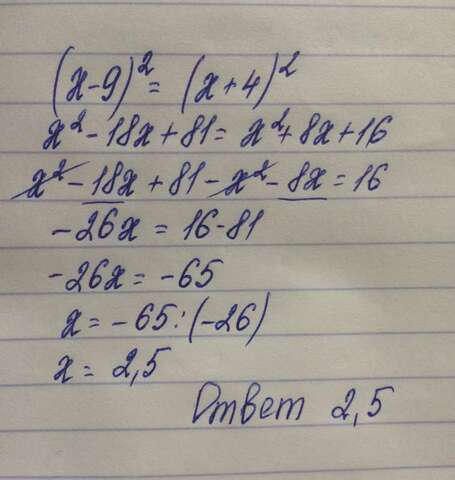 (x-9)² = (x+4)²
x² - 18x + 81 = x² + 8x + 16
x² - 18x + 81 - x² - 8x = 16
-26x = 16-81
-26x = -65
x = -65:(-26)
x = 2,5
Ответ 2,5